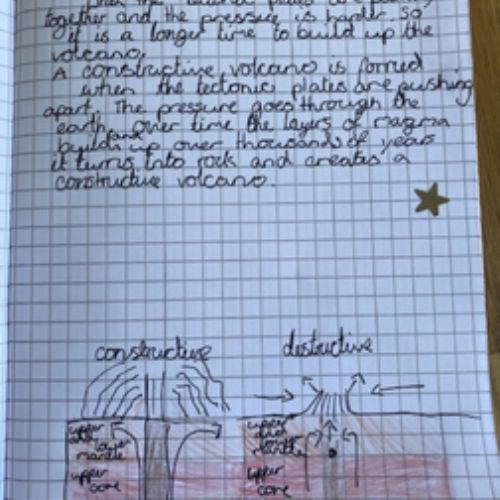 when the tectonic plates are pushing
together and the pressure is harder. So
it is a longer time to build up the
volcano.
A constructive volcano is formed
when the tectonic plates are pushing
apart. The pressure goes through the
earth, over time the layers of magma
build up and over thousands of years
it turns into rock and creates a
constructive volcano.
constructive destructive
upper
lower
mantle
upper
core
upper
mantle
upper
core